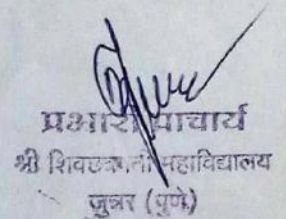 प्रभारी प्राचार्य
श्री शिवछत्रपती महाविद्यालय
जुन्नर (पुणे)